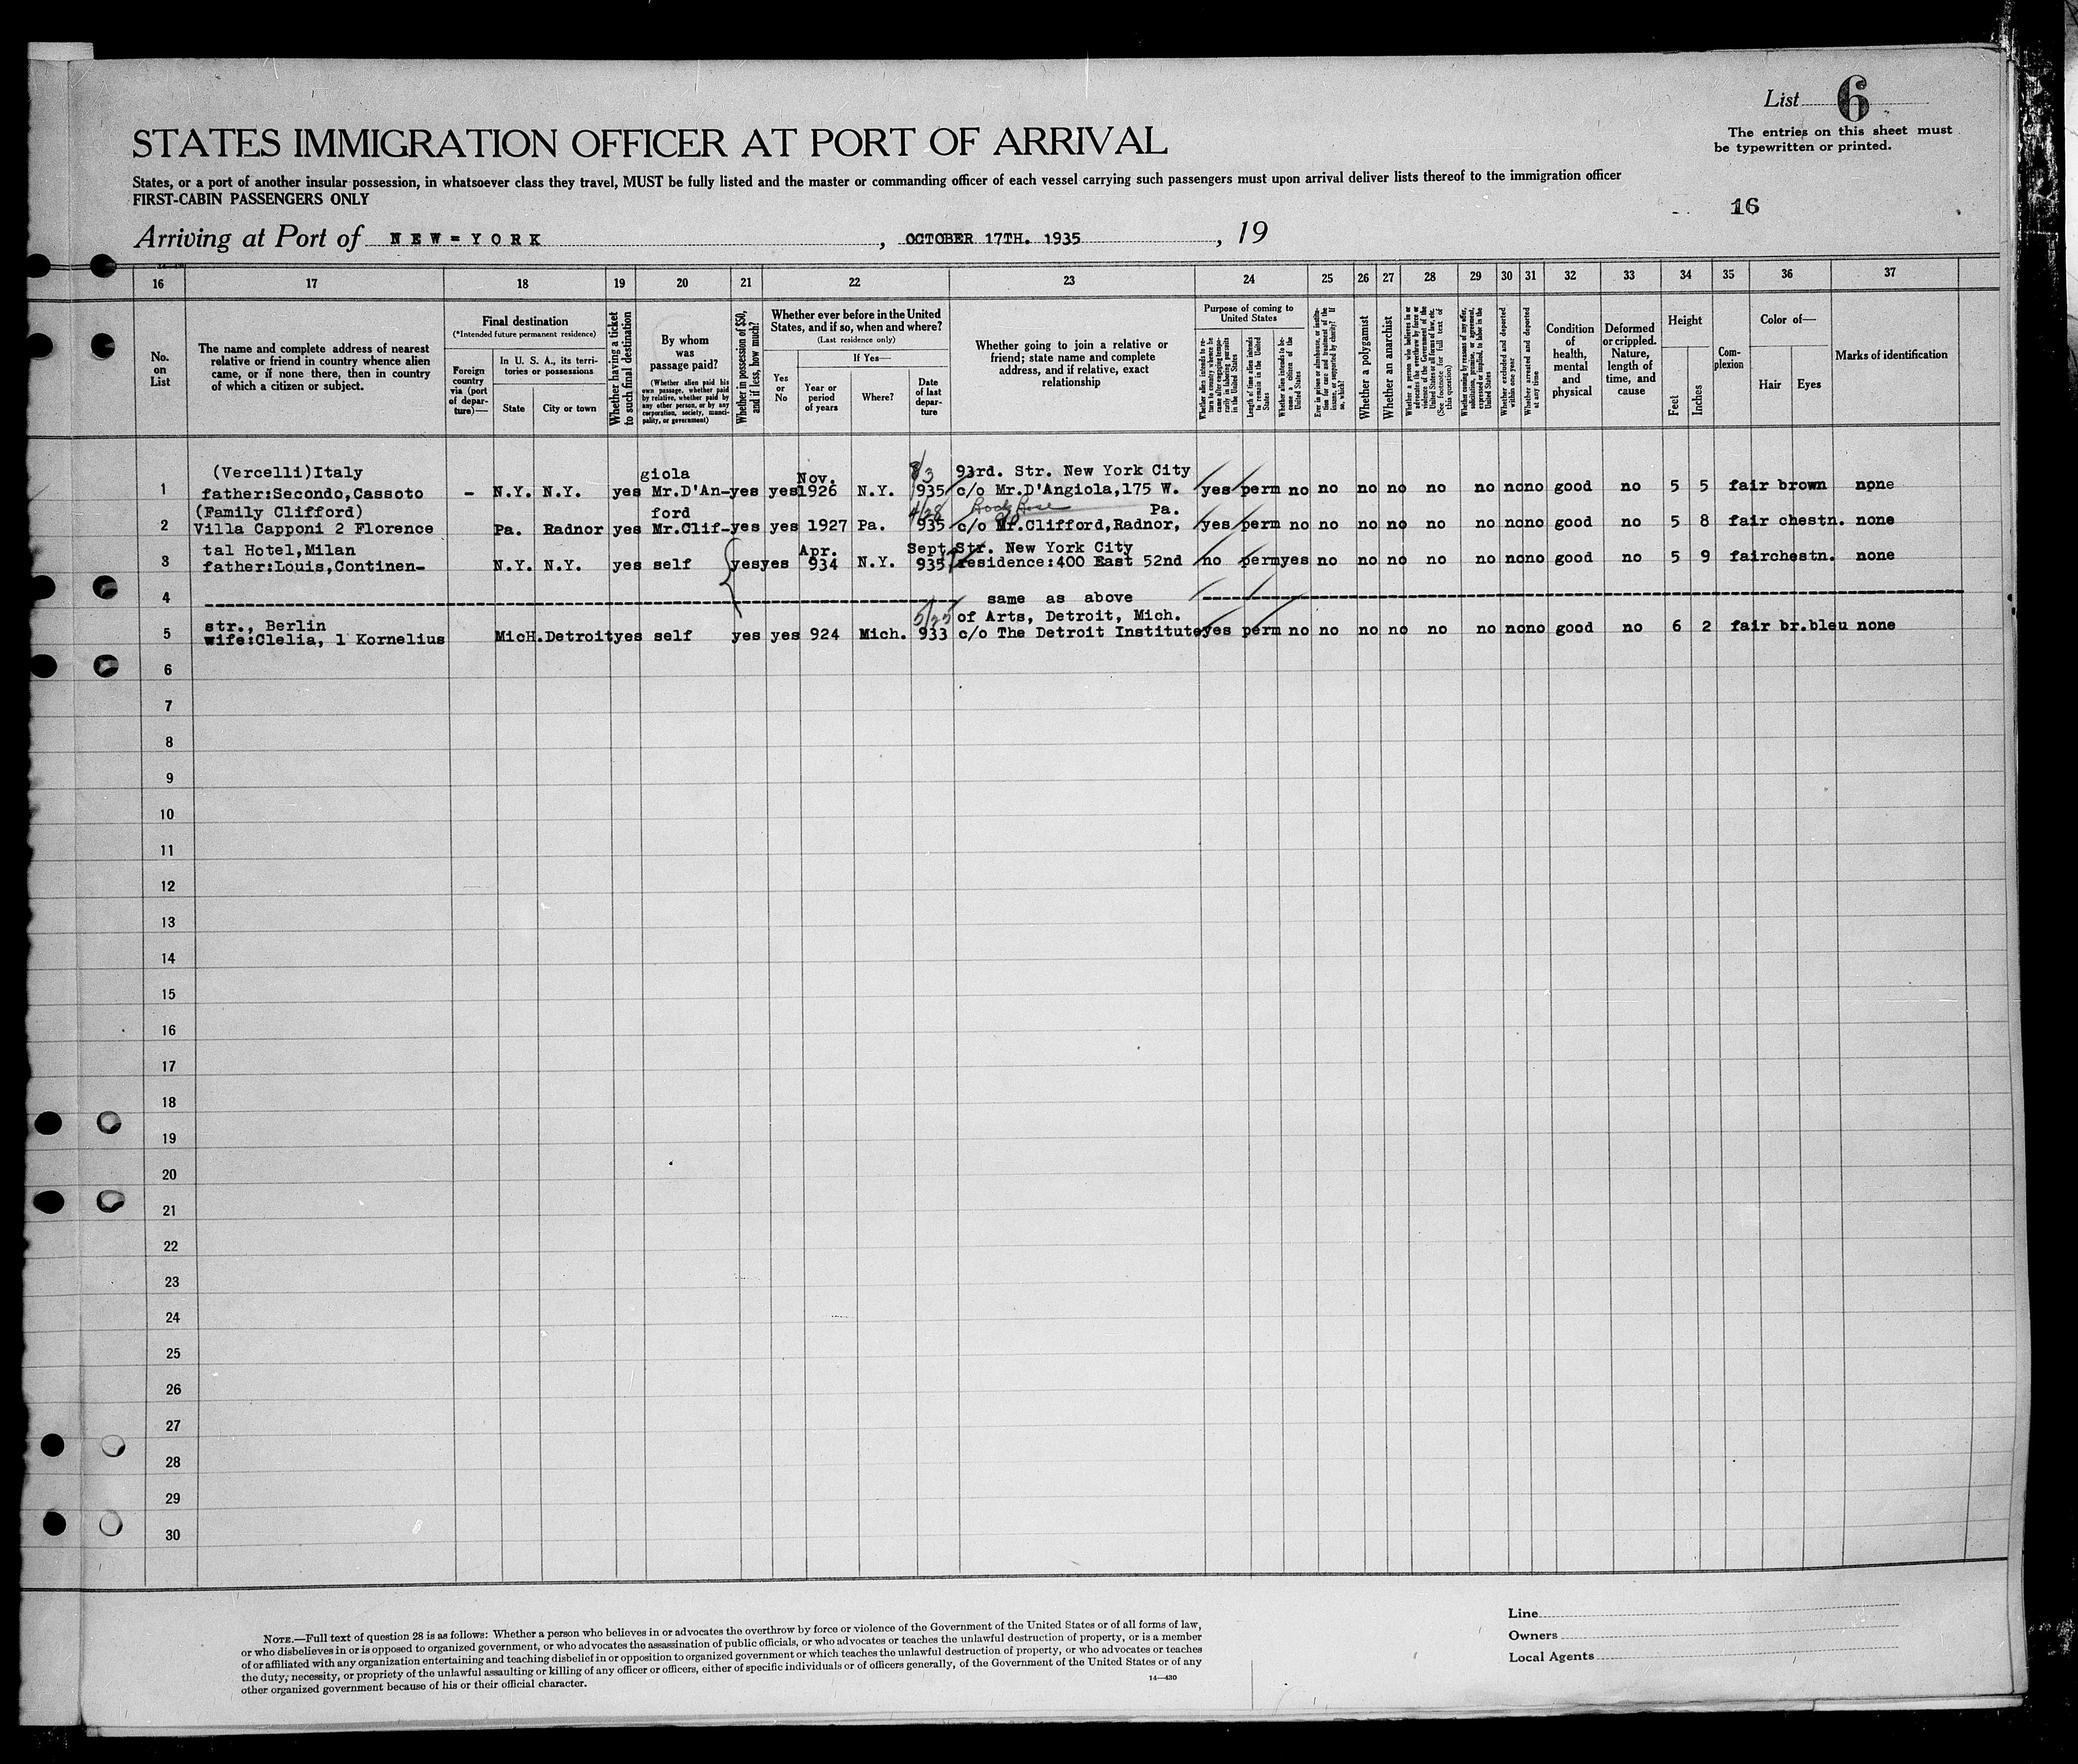 List 6
The entries on this sheet must
be typewritten or printed.
STATES IMMIGRATION OFFICER AT PORT OF ARRIVAL
States, or a port of another insular possession, in whatsoever class they travel, MUST be fully listed and the master or commanding officer of each vessel carrying such passengers must upon arrival deliver lists thereof to the immigration officer
FIRST-CABIN PASSENGERS ONLY
16
Arriving at Port of NEW=YORK, OCTOBER 17TH. 1935, 19
16 17 18 19 20 21 22 23 24 25 26 27 28 29 30 31 32 33 34 35 36 37
No. on List
The name and complete address of nearest
relative or friend in country whence alien
came, or if none there, then in country
of which a citizen or subject.
Final destination
(*Intended future permanent residence)
Foreign country via (port of departure)—
In U. S. A., its territories or possessions
State
City or town
Whether having a ticket to such final destination
By whom was passage paid?
(Whether alien paid his own passage, whether paid by relative, whether paid by any other person, or by any corporation, society, municipality, or government)
Whether in possession of $50, and if less, how much?
Whether ever before in the United
States, and if so, when and where?
(Last residence only)
Yes or No
If Yes—
Year or period of years
Where?
Date of last departure
Whether going to join a relative or
friend; state name and complete
address, and if relative, exact
relationship
Purpose of coming to United States
Whether alien intends to return to country whence he came after engaging temporarily in laboring pursuits in the United States
Length of time alien intends to remain in the United States
Whether alien intends to become a citizen of the United States
Ever in prison or almshouse, or institution for care and treatment of the insane, or supported by charity? If so, which?
Whether a polygamist
Whether an anarchist
Whether a person who believes in or advocates the overthrow by force or violence of the Government of the United States or all forms of law, etc. (See footnote for full text of this question)
Whether coming by reasons of any offer, solicitation, promise, or agreement, expressed or implied, to labor in the United States
Whether excluded and deported within one year
Whether arrested and deported at any time
Condition of health, mental and physical
Deformed or crippled. Nature, length of time, and cause
Height
Feet
Inches
Complexion
Color of—
Hair
Eyes
Marks of identification
(Vercelli)Italy giola Nov. 8/3 93rd. Str. New York City
1 father:Secondo,Cassoto - N.Y. N.Y. yes Mr.D'An- yes yes 1926 N.Y. 935 c/o Mr.D'Angiola,175 W. yes perm no no no no no no no no good no 5 5 fair brown none
(Family Clifford) ford 4/28 Pa.
2 Villa Capponi 2 Florence Pa. Radnor yes Mr.Clif- yes yes 1927 Pa. 935 c/o Mr.Clifford,Radnor, yes perm no no no no no no no no good no 5 8 fair chestn. none
tal Hotel,Milan Apr. Sept. Str. New York City
3 father:Louis,Continen- N.Y. N.Y. yes self yes yes 934 N.Y. 935 residence:400 East 52nd no perm yes no no no no no no no good no 5 9 fair chestn. none
4 same as above
str., Berlin of Arts, Detroit, Mich.
5 wife:Clelia, 1 Kornelius MicH. Detroit yes self yes yes 924 Mich. 933 c/o The Detroit Institute yes perm no no no no no no no no good no 6 2 fair br.bleu none
6
7
8
9
10
11
12
13
14
15
16
17
18
19
20
21
22
23
24
25
26
27
28
29
30
NOTE.—Full text of question 28 is as follows: Whether a person who believes in or advocates the overthrow by force or violence of the Government of the United States or of all forms of law,
or who disbelieves in or is opposed to organized government, or who advocates the assassination of public officials, or who advocates or teaches the unlawful destruction of property, or is a member
of or affiliated with any organization entertaining and teaching disbelief in or opposition to organized government or which teaches the unlawful destruction of property, or who advocates or teaches
the duty, necessity, or propriety of the unlawful assaulting or killing of any officer or officers, either of specific individuals or of officers generally, of the Government of the United States or of any
other organized government because of his or their official character.
14—430
Line
Owners
Local Agents